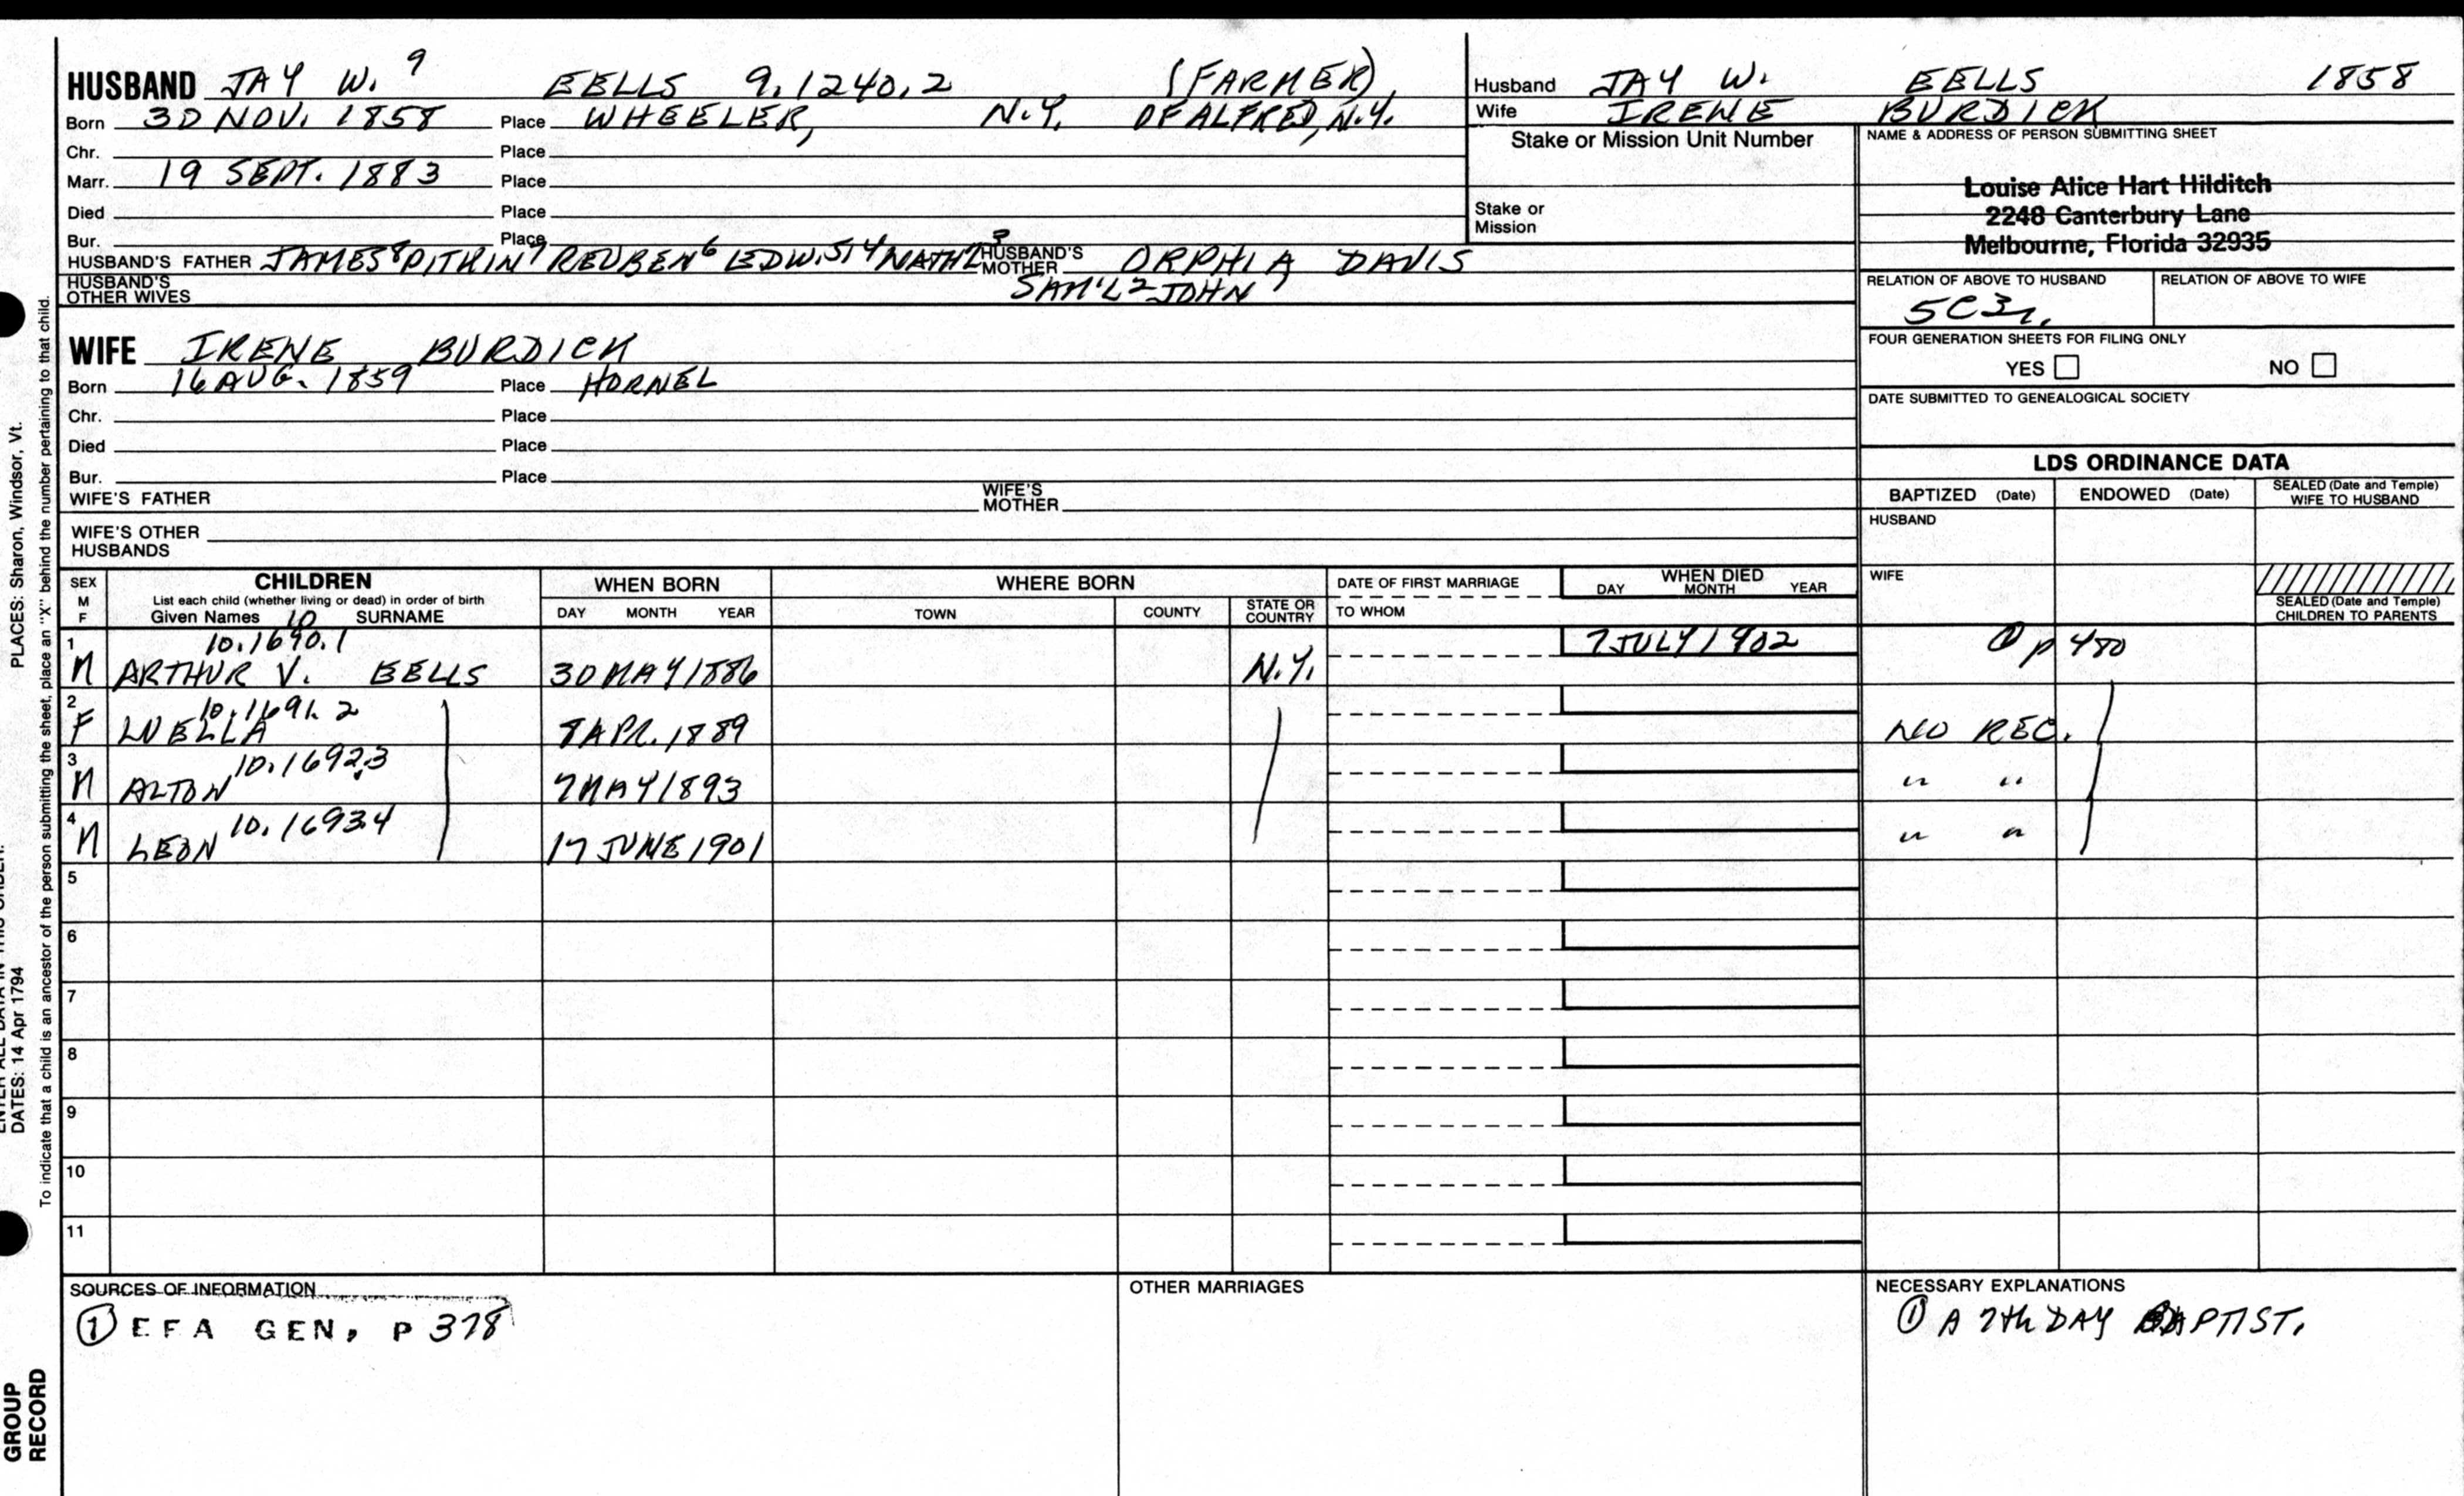 HUSBAND JAY W. 9 EELLS 9.1240.2 (FARMER)
Born 30 NOV. 1858 Place WHEELER, N.Y. OF ALFRED, N.Y.
Chr. Place
Marr. 19 SEPT. 1883 Place
Died Place
Bur. Place
HUSBAND'S FATHER JAMES 8 PITKIN 7 REUBEN 6 EDW. 5 4 NATH'L 3 HUSBAND'S MOTHER ORPHIA DAVIS
HUSBAND'S OTHER WIVES SAM'L 2 JOHN 1
Husband JAY W. EELLS 1858
Wife IRENE BURDICK
Stake or Mission Unit Number
Stake or Mission
NAME & ADDRESS OF PERSON SUBMITTING SHEET
Louise Alice Hart Hilditch
2248 Canterbury Lane
Melbourne, Florida 32935
RELATION OF ABOVE TO HUSBAND RELATION OF ABOVE TO WIFE
5C3r.
FOUR GENERATION SHEETS FOR FILING ONLY
YES NO
DATE SUBMITTED TO GENEALOGICAL SOCIETY
WIFE IRENE BURDICK
Born 16 AUG. 1859 Place HORNEL
Chr. Place
Died Place
Bur. Place
WIFE'S FATHER WIFE'S MOTHER
WIFE'S OTHER HUSBANDS
LDS ORDINANCE DATA
BAPTIZED (Date) ENDOWED (Date) SEALED (Date and Temple) WIFE TO HUSBAND
HUSBAND
WIFE
SEALED (Date and Temple) CHILDREN TO PARENTS
SEX M F CHILDREN WHEN BORN WHERE BORN DATE OF FIRST MARRIAGE WHEN DIED
List each child (whether living or dead) in order of birth
Given Names 10 SURNAME DAY MONTH YEAR TOWN COUNTY STATE OR COUNTRY TO WHOM DAY MONTH YEAR
1 10.1690.1 7 JULY 1902
M ARTHUR V. EELLS 30 MAY 1886 N.Y. ① p 480
2 10.1691.2
F LUELLA 8 APR. 1889 NO REC.
3 10.1692.3
M ALTON 7 MAY 1893 " "
4 10.1693.4
M LEON 17 JUNE 1901 " "
5
6
7
8
9
10
11
SOURCES OF INFORMATION OTHER MARRIAGES NECESSARY EXPLANATIONS
① EFA GEN, P 378 ① A 7th DAY BAPTIST.
PLACES: Sharon, Windsor, Vt.
DATES: 14 Apr 1794
To indicate that a child is an ancestor of the person submitting the sheet, place an "X" behind the number pertaining to that child.
GROUP
RECORD